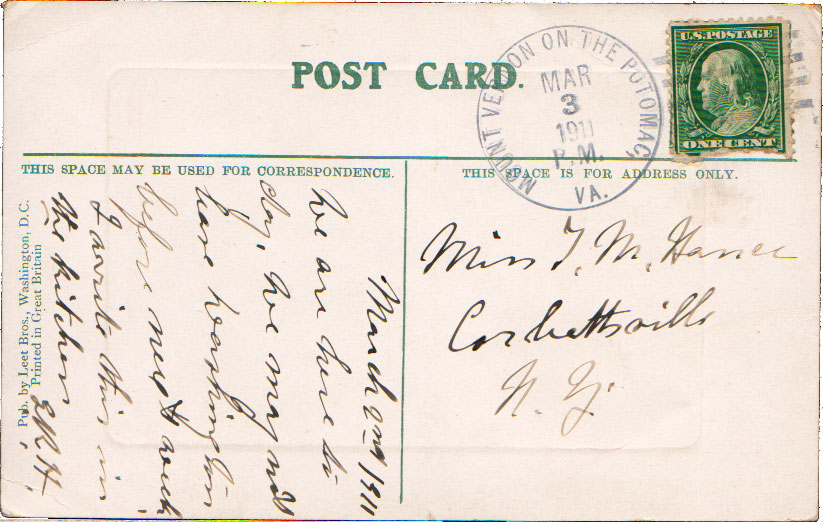 POST CARD.
MOUNT VERNON ON THE POTOMAC,
MAR
3
1911
P.M.
VA.
U.S. POSTAGE
ONE CENT
THIS SPACE MAY BE USED FOR CORRESPONDENCE.
THIS SPACE IS FOR ADDRESS ONLY.
March 2nd 1911
We are here to
day, We may not
leave Washington
before next week
I write this in
the kitchen
Miss J. M.
Corbettsville
N. Y.
Pub. by Leet Bros., Washington, D.C.
Printed in Great Britain